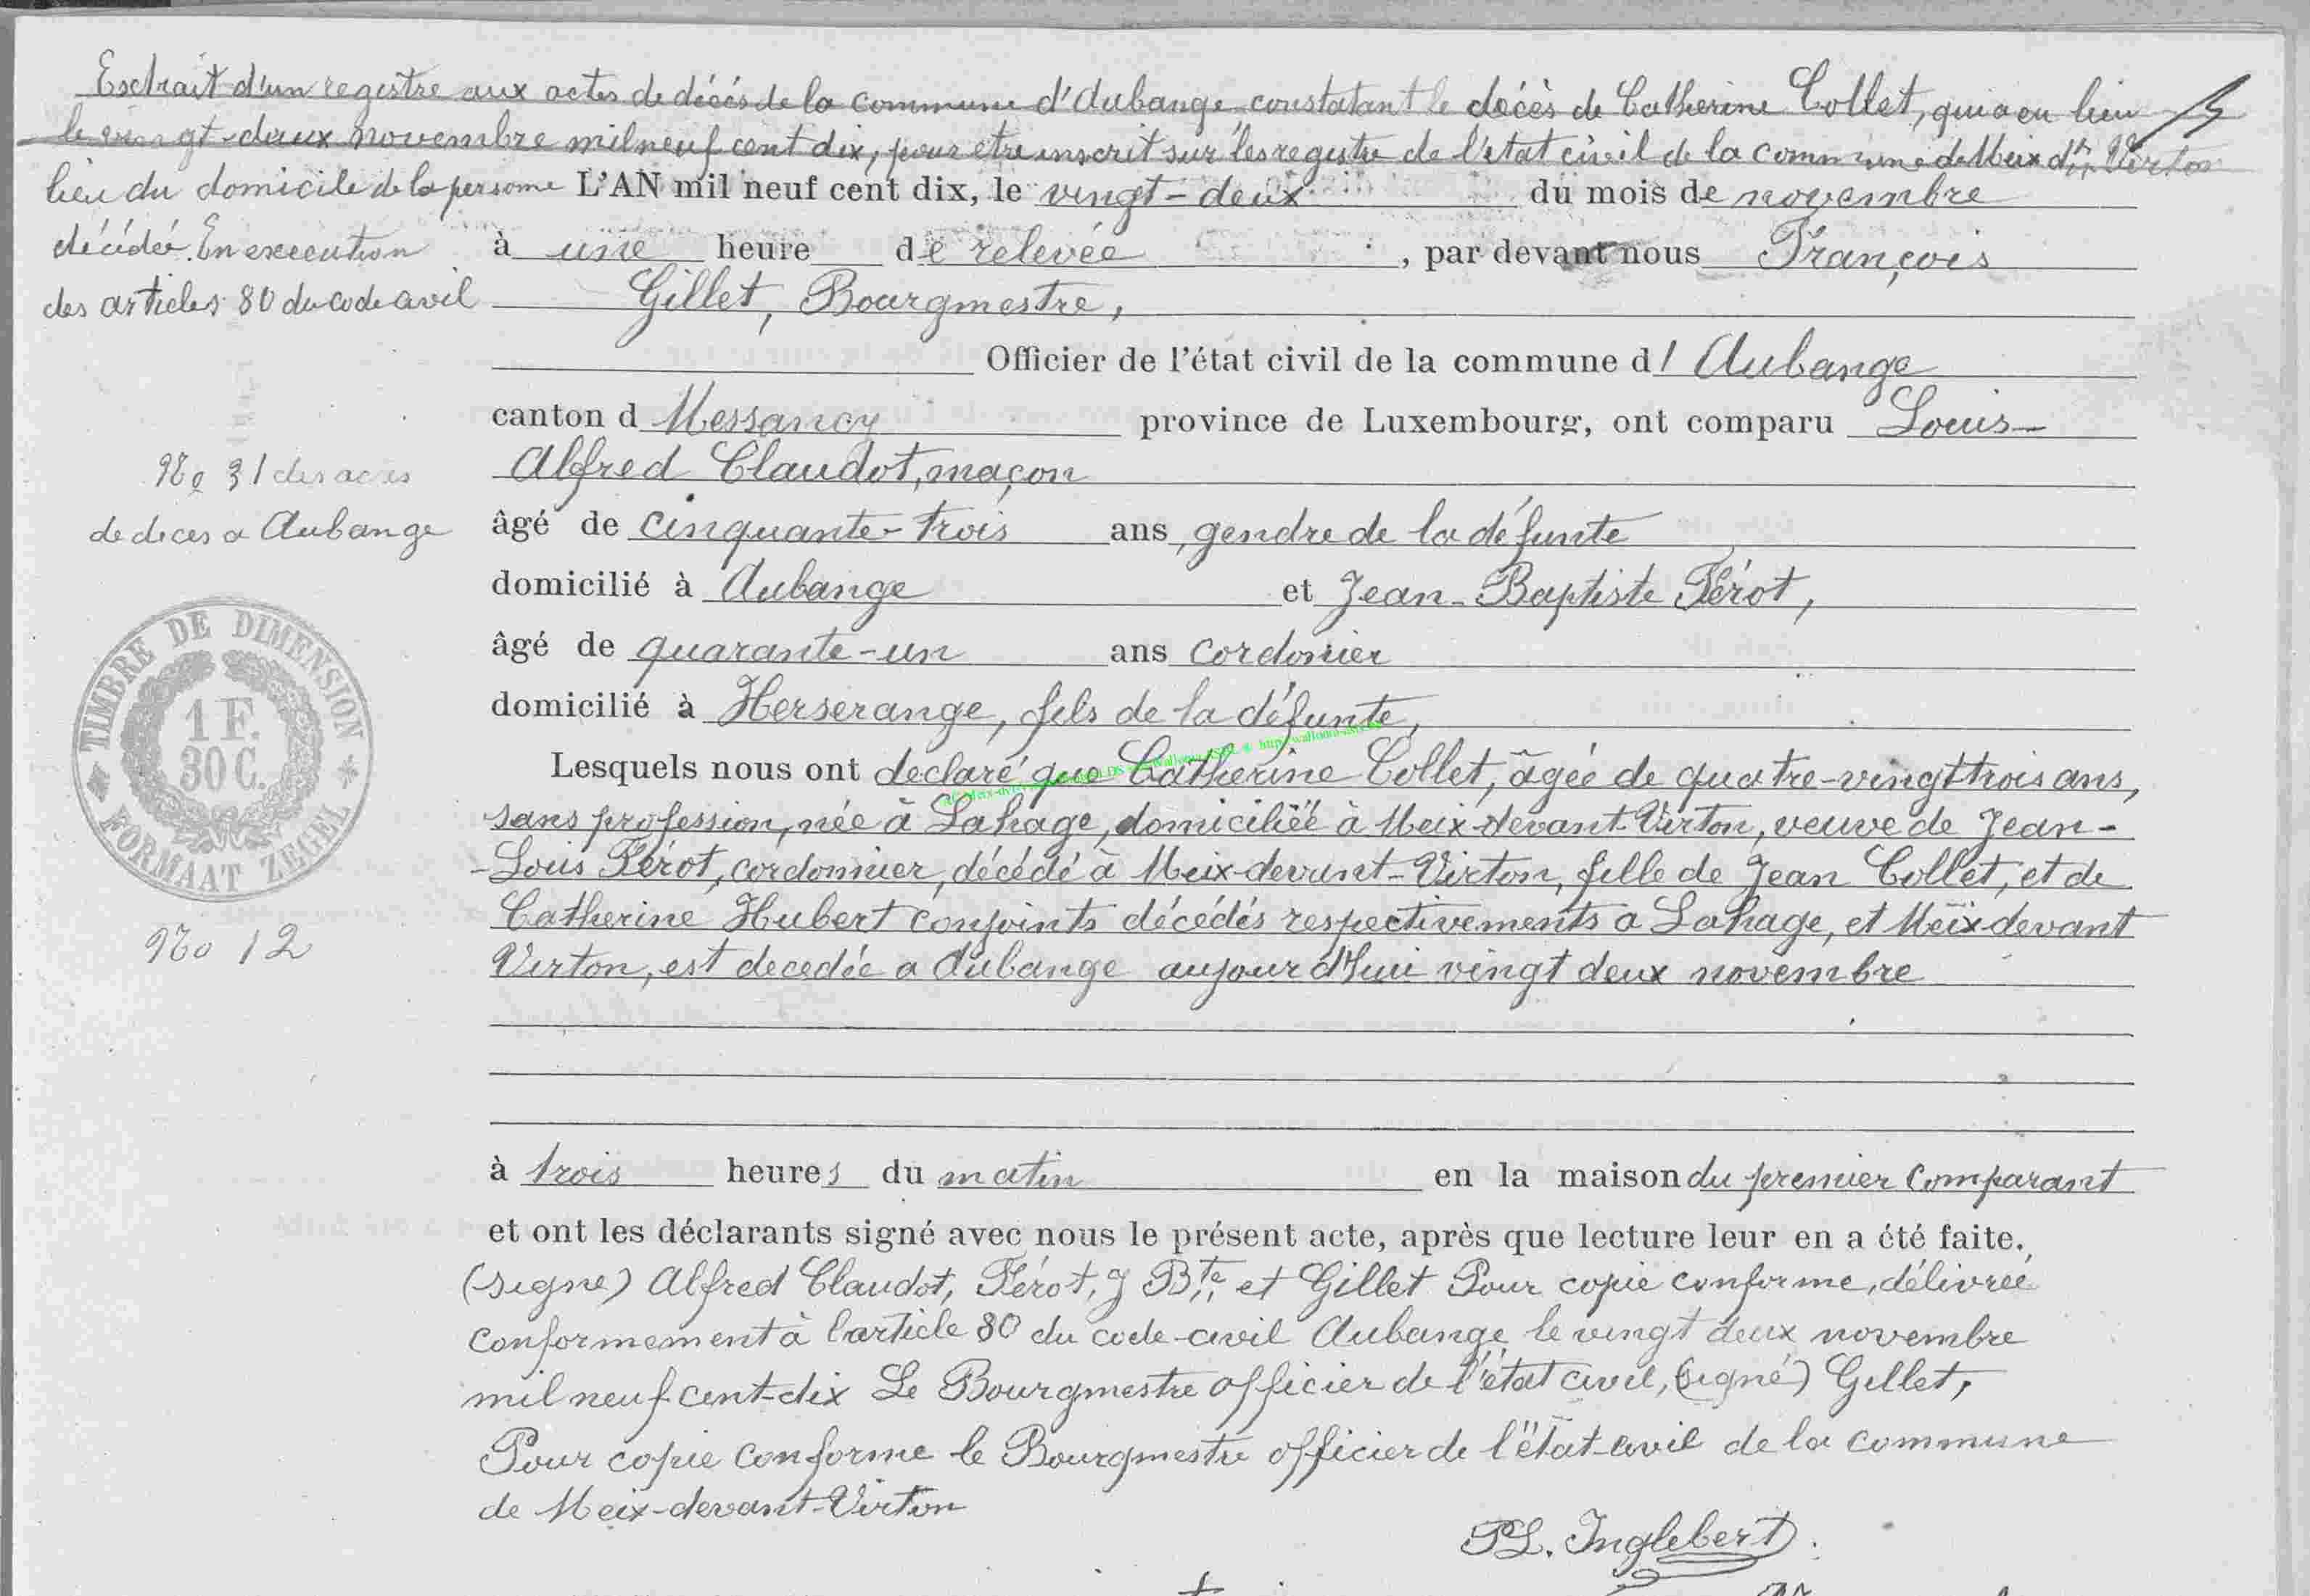 Extrait d'un registre aux actes de décés de la commune d'Aubange, constatant le décès de Catherine Collet, qui a eu lieu
le vingt-deux novembre mil neuf cent dix, pour etre inscrit sur les registre de l'état civil de la commune de Meix dt Virton
lieu du domicile de la persone L'AN mil neuf cent dix, le vingt-deux du mois de novembre
décédée. En execution à une heure de relevée , par devant nous François
des articles 80 du code civil Gillet, Bourgmestre,
Officier de l'état civil de la commune d' Aubange
canton d Messancy province de Luxembourg, ont comparu Louis-
No 31 des actes Alfred Claudot, maçon
de deces a Aubange âgé de cinquante-trois ans, gendre de la défunte
domicilié à Aubange et Jean-Baptiste Férot,
âgé de quarante-un ans cordonier
domicilié à Herserange, fils de la défunte,
TIMBRE DE DIMENSION
1 F.
30 C.
FORMAAT ZEGEL
No 12
Lesquels nous ont declaré que Catherine Collet, âgée de quatre-vingt trois ans,
sans profession, née à Lahage, domiciliéé à Meix-devant-Virton, veuve de Jean-
-Louis Férot, cordonnier, décédé à Meix-devant-Virton, fille de Jean Collet, et de
Catherine Hubert conjoints décédés respectivements a Lahage, et Meix-devant
Virton, est decedée a Aubange aujourd'hui vingt deux novembre
à trois heures du matin en la maison du premier comparant
et ont les déclarants signé avec nous le présent acte, après que lecture leur en a été faite.,
(signe) Alfred Claudot, Férot, J Bte et Gillet Pour copie conforme, délivrée
conformement à l'article 80 du code-civil Aubange, le vingt deux novembre
mil neuf cent-dix Le Bourgmestre officier de l'état civil, (signé) Gillet,
Pour copie conforme le Bourgmestre officier de l'état-civil de la commune
de Meix-devant-Virton
PL. Inglebert.